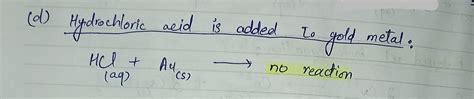 (d) Hydrochloric acid is added to gold metal.
HCl (aq) + Au(s) ⟶ no reaction